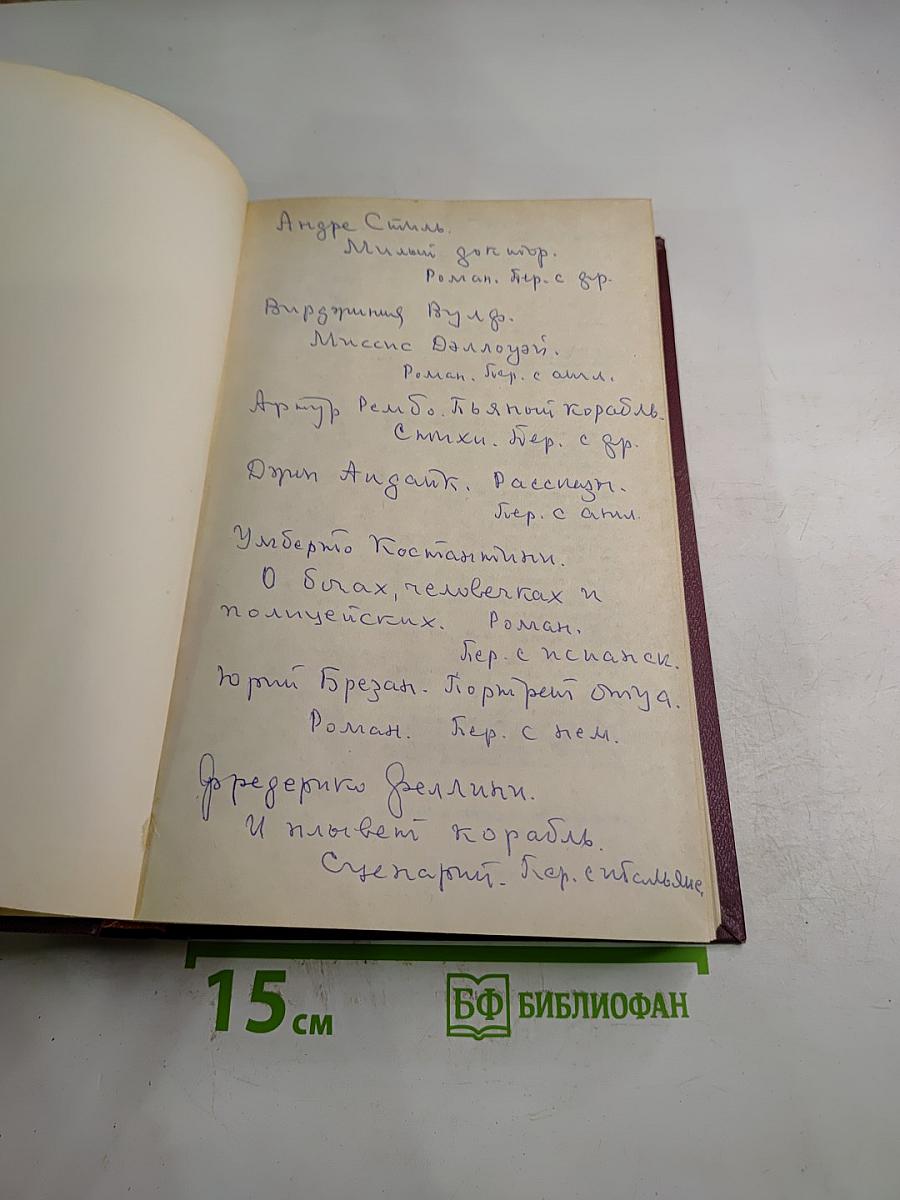 Андре Стиль.
Милый доктор.
Роман. Пер. с фр.
Вирджиния Вулф.
Миссис Дэллоуэй.
Роман. Пер. с англ.
Артур Рембо. Пьяный корабль.
Стихи. Пер. с фр.
Джон Апдайк. Рассказы.
Пер. с англ.
Умберто Костантини.
О богах, человечках и
полицейских. Роман.
Пер. с испанск.
Юрий Брезан. Портрет отца.
Роман. Пер. с нем.
Фредерико Феллини.
И плывет корабль.
Сценарий. Пер. с итальянс.
15 см
БФ БИБЛИОФАН